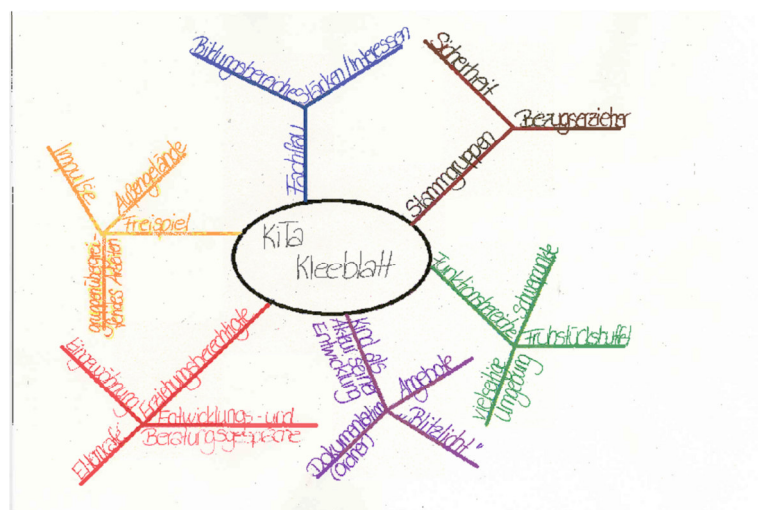 KiTa
Kleeblatt
Fachfrau
Bildungsbereiche
Stärken/Interessen
Stammgruppen
Sicherheit
Bezugserzieher
Funktionsbereiche
Schwerpunkte
Frühstücksbuffet
vielseitige
Umgebung
Kind als
Akteur seiner
Entwicklung
Angebote
"Blitzlicht"
Dokumentation
(Ordner)
Erziehungsberechtigte
Eingewöhnung
Entwicklungs- und
Beratungsgespräche
Elterncafé
Freispiel
Impulse
Außengelände
gruppenübergrei-
fendes Arbeiten